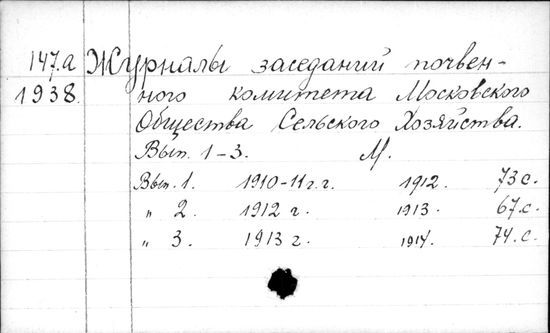 147.а Журналы заседаний почвен-
1938. ного комитета Московского
Общества Сельского Хозяйства.
Вып. 1-3. М.
Вып. 1. 1910-11 г.г. 1912. 73 с.
„ 2. 1912 г. 1913. 67 с.
„ 3. 1913 г. 1914. 74 с.